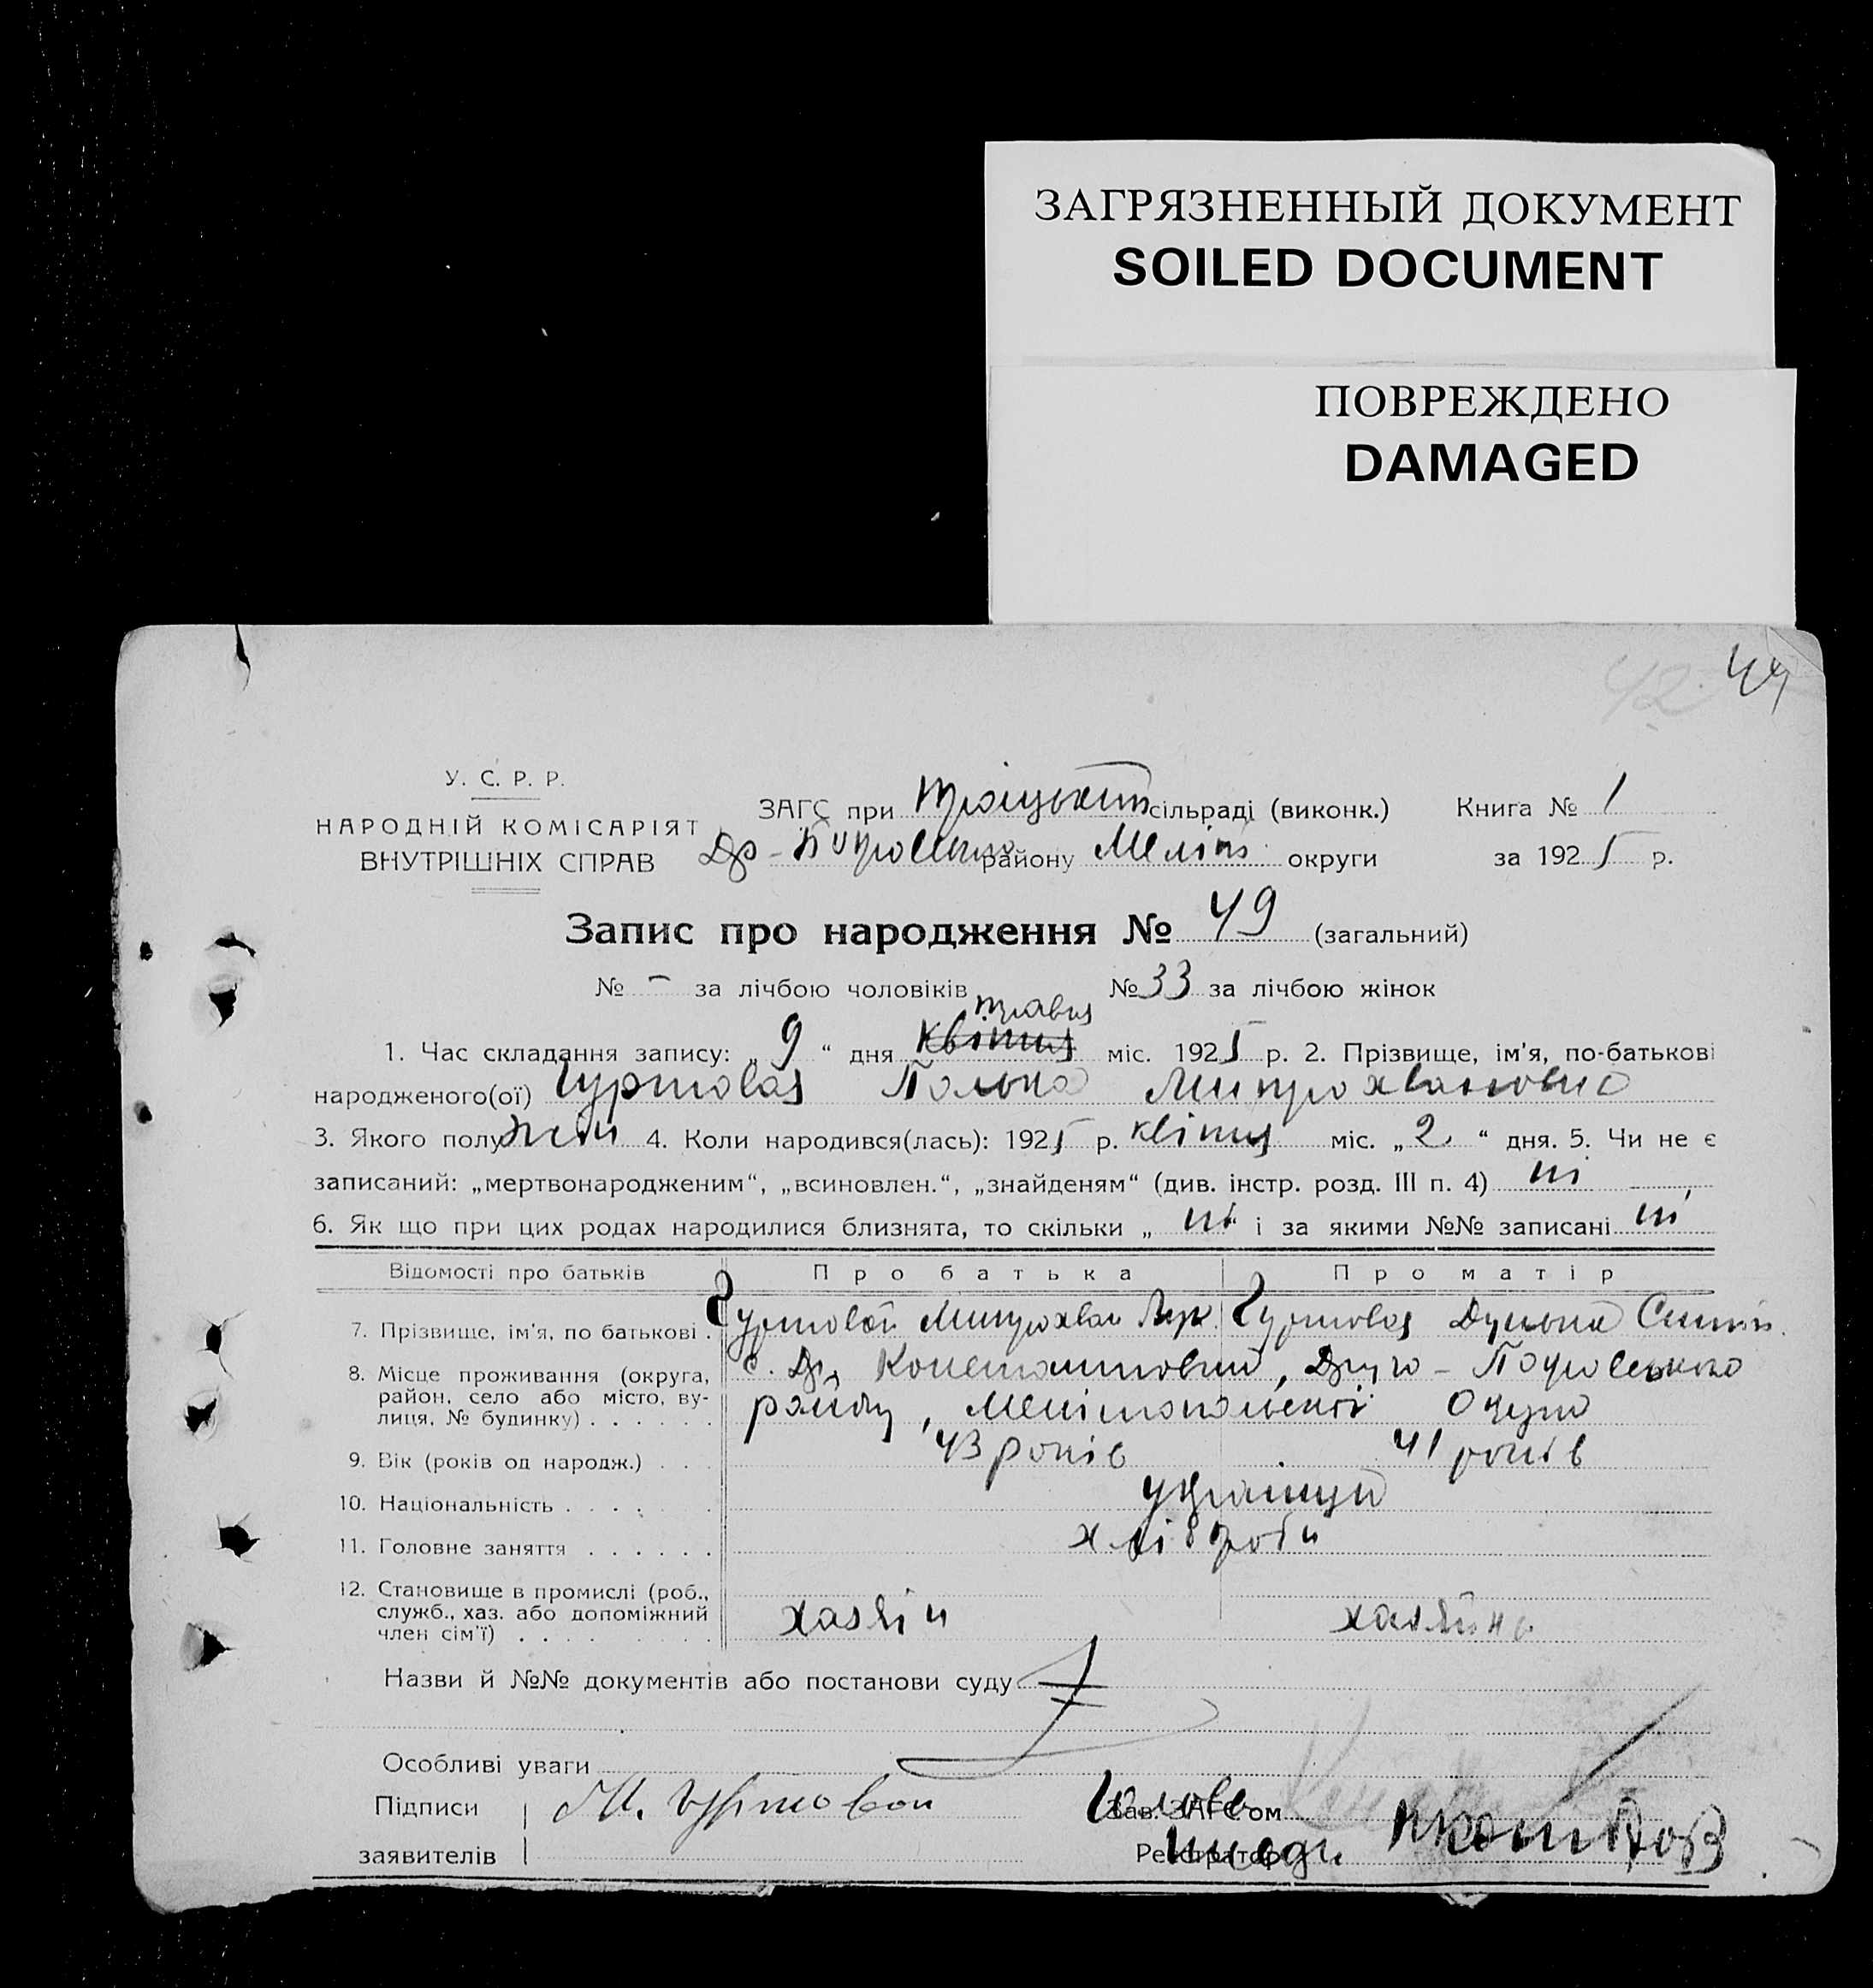 ЗАГРЯЗНЕННЫЙ ДОКУМЕНТ
SOILED DOCUMENT
ПОВРЕЖДЕНО
DAMAGED
42 49
У. С. Р. Р.
НАРОДНІЙ КОМІСАРІЯТ
ВНУТРІШНІХ СПРАВ
ЗАГС при сільраді (виконк.) Книга № 1
району Меліт. округи за 1925 р.
Запис про народження № 49 (загальний)
№ - за лічбою чоловіків № 33 за лічбою жінок
травня
1. Час складання запису: „ 9 “ дня квітня міс. 1925 р. 2. Прізвище, ім’я, по-батькові
народженого(ої) Гуртовая Полька Митрохвановна
3. Якого полу жін 4. Коли народився(лась): 1925 р. квітня міс. „ 2 “ дня. 5. Чи не є
записаний: „мертвонародженим“, „всиновлен.“, „знайденям“ (див. інстр. розд. III п. 4) ні
6. Як що при цих родах народилися близнята, то скільки „ ні “ і за якими №№ записані ні
Відомості про батьків Про батька Про матір
7. Прізвище, ім’я, по батькові . Гуртовой Митрохван Гуртовая
8. Місце проживання (округа,
район, село або місто, ву-
лиця, № будинку) . . . . . .
району, Мелітопольскої Округи
9. Вік (років од народж.) . . . 43 років 41 років
10. Національність . . . . . українці
11. Головне заняття . . . . . . хлібороби
12. Становище в промислі (роб.,
служб., хаз. або допоміжний
член сім’ї) . . . . . . . . хазяін хазяйка
Назви й №№ документів або постанови суду
Особливі уваги
Підписи Гуртовой Зав. ЗАГС’ом
заявителів Реєстратор